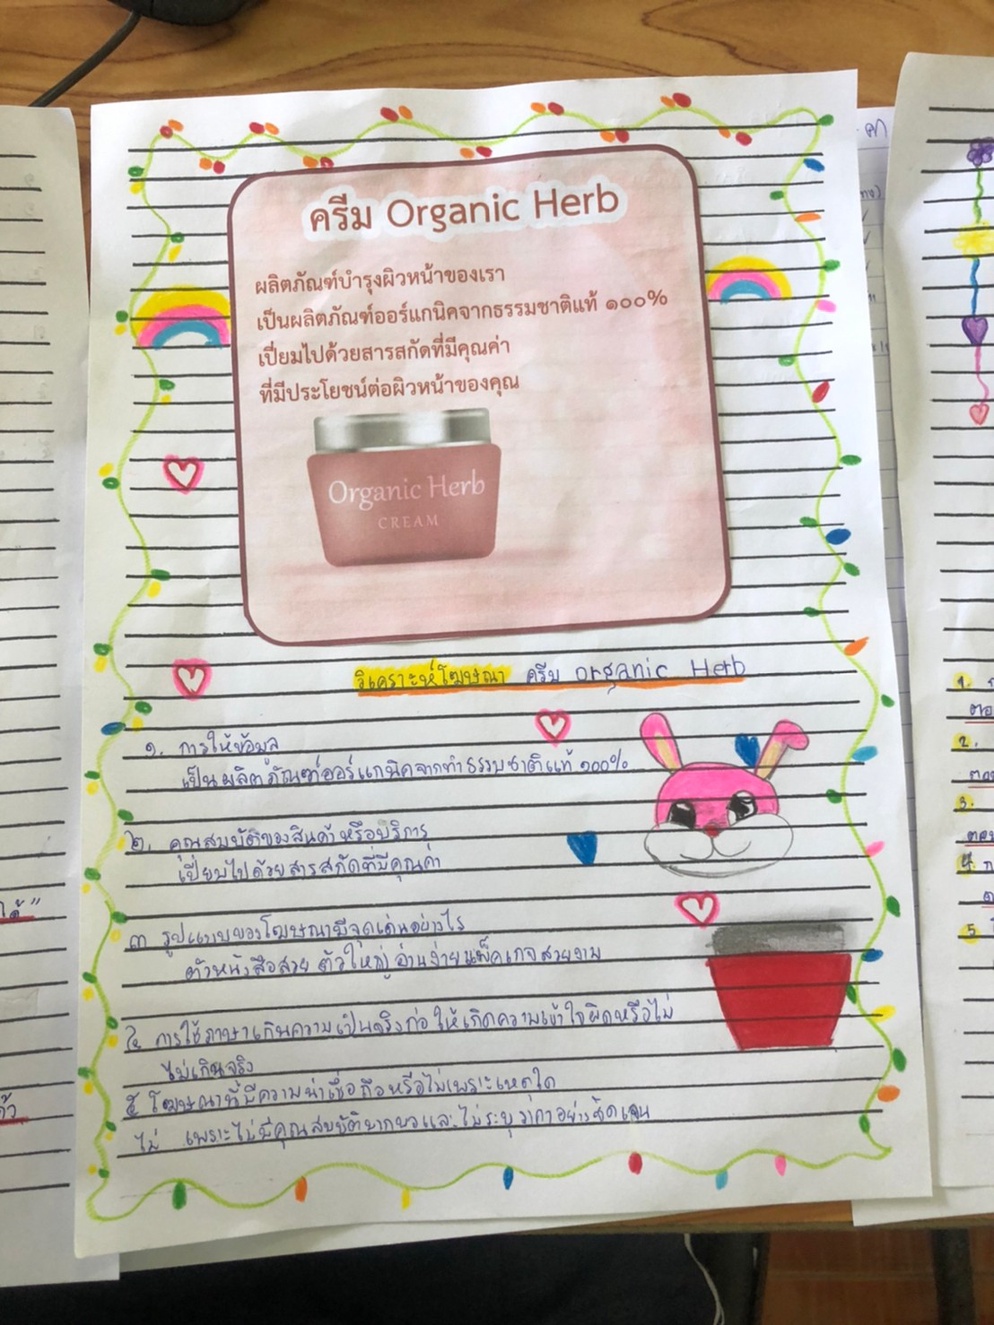 ครีม Organic Herb
ผลิตภัณฑ์บำรุงผิวหน้าของเรา
เป็นผลิตภัณฑ์ออร์แกนิคจากธรรมชาติแท้ ๑๐๐%
เปี่ยมไปด้วยสารสกัดที่มีคุณค่า
ที่มีประโยชน์ต่อผิวหน้าของคุณ
Organic Herb
CREAM
วิเคราะห์โฆษณา ครีม organic Herb
๑. การให้ข้อมูล
เป็นผลิตภัณฑ์ออร์แกนิคจากทำธรรมชาติแท้ ๑๐๐%
๒. คุณสมบัติของสินค้าหรือบริการ
เปี่ยมไปด้วยสารสกัดที่มีคุณค่า
๓ รูปแบบของโฆษณามีจุดเด่นอย่างไร
ตัวหนังสือสวย ตัวใหญ่ อ่านง่ายแพ็คเกจสวยงาม
๔ การใช้ภาษาเกินความเป็นจริงก่อให้เกิดความเข้าใจผิดหรือไม่
ไม่เกินจริง
๕ โฆษณานี้มีความน่าเชื่อถือหรือไม่เพราะเหตุใด
ไม่ เพราะไม่มีคุณสมบัติมากพอและไม่ระบุราคาอย่างชัดเจน
1.
2.
3.
4
5